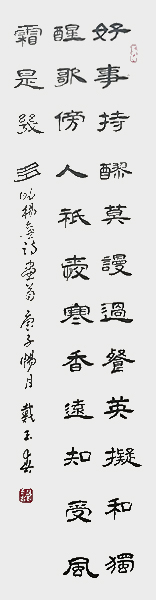 好事持醪莫謾過餐英擬和獨
醒歌傍人祇愛寒香遠知受風
霜是幾多 明楊詩畫菊 庚子暢月 戴玉